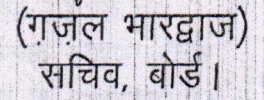 (ग़ज़ंल भारद्वाज)
सचिव, बोर्ड।